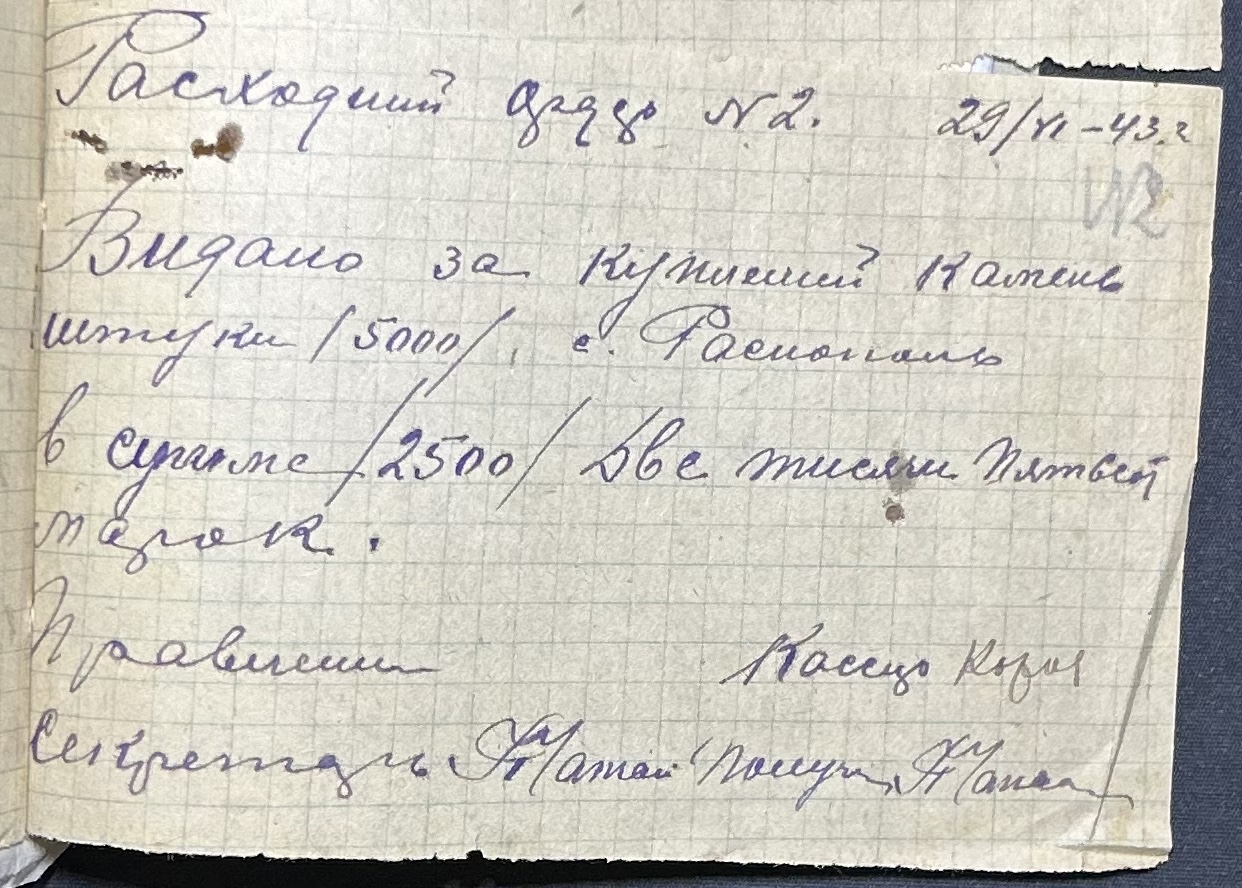 Расходний ордер N2. 29/VI-43.г
N2
Видано за купленний камень
штуки /5000/, с. Распополь
в сумме /2500/ Две тисячи Пятьсот
марок.
Правлении Кассир
Секретарь Получ